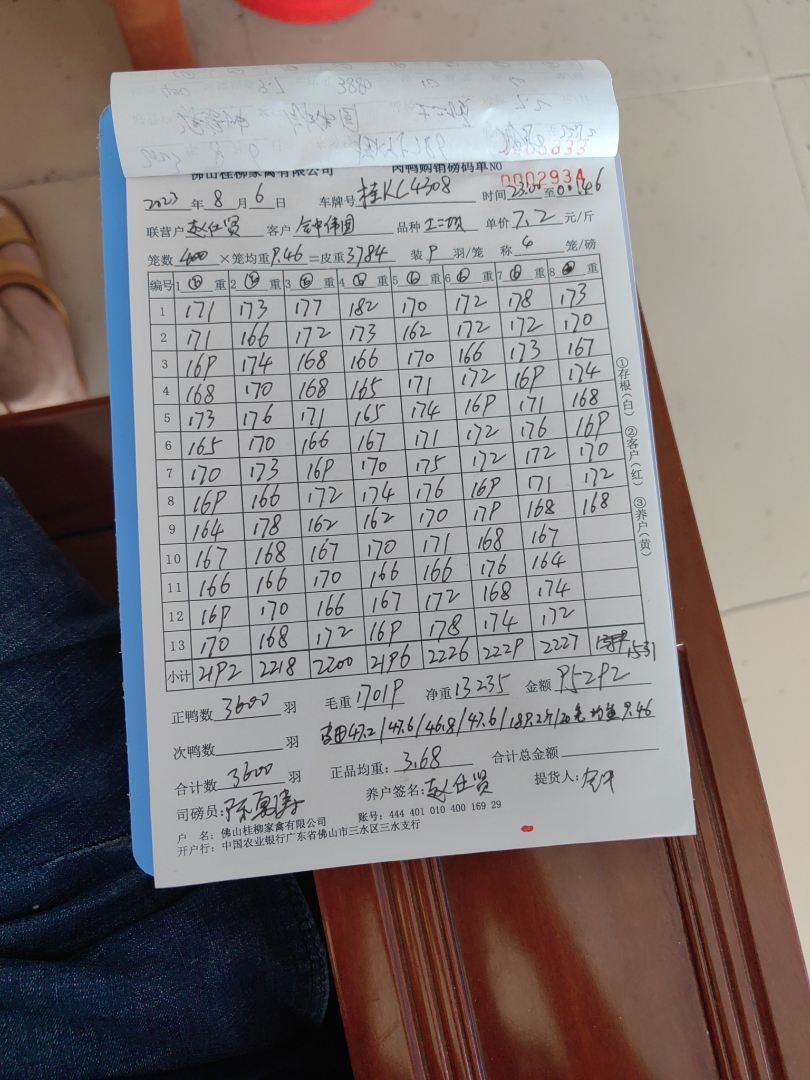 佛山桂柳家禽有限公司 肉鸭购销磅码单NO 0002934
2023 年 8 月 6 日 车牌号 桂KC4308 时间 23:00 至 0:46
联营户 赵仕贤 客户 品种 单价 7.2 元/斤
笼数 400 ×笼均重 9.46 =皮重 3784 装 9 羽/笼 称 4 笼/磅
编号 1 重 2 重 3 重 4 重 5 重 6 重 7 重 8 重
1 171 173 177 182 170 172 178 173
2 171 166 172 173 162 172 172 170
3 169 174 168 166 170 166 173 167
4 168 170 168 165 171 172 169 174
5 173 176 171 165 174 169 171 168
6 165 170 166 167 171 172 176 169
7 170 173 169 170 175 172 172 170
8 169 166 172 174 176 169 171 172
9 164 178 162 162 170 179 168 168
10 167 168 167 170 171 168 167
11 166 166 170 166 166 176 164
12 169 170 166 167 172 168 174
13 170 168 172 169 178 174 172
小计 2192 2218 2200 2196 2226 2229 2227 1531
正鸭数 3600 羽 毛重 17019 净重 13235 金额 95292
次鸭数 羽 47.2/47.6/46.8/47.6/189.2斤/20笼 均重 9.46
合计数 3600 羽 正品均重: 3.68 合计总金额
司磅员: 养户签名: 赵仕贤 提货人:
户 名: 佛山桂柳家禽有限公司 账号: 444 401 010 400 169 29
开户行: 中国农业银行广东省佛山市三水区三水支行
①存根(白) ②客户(红) ③养户(黄)